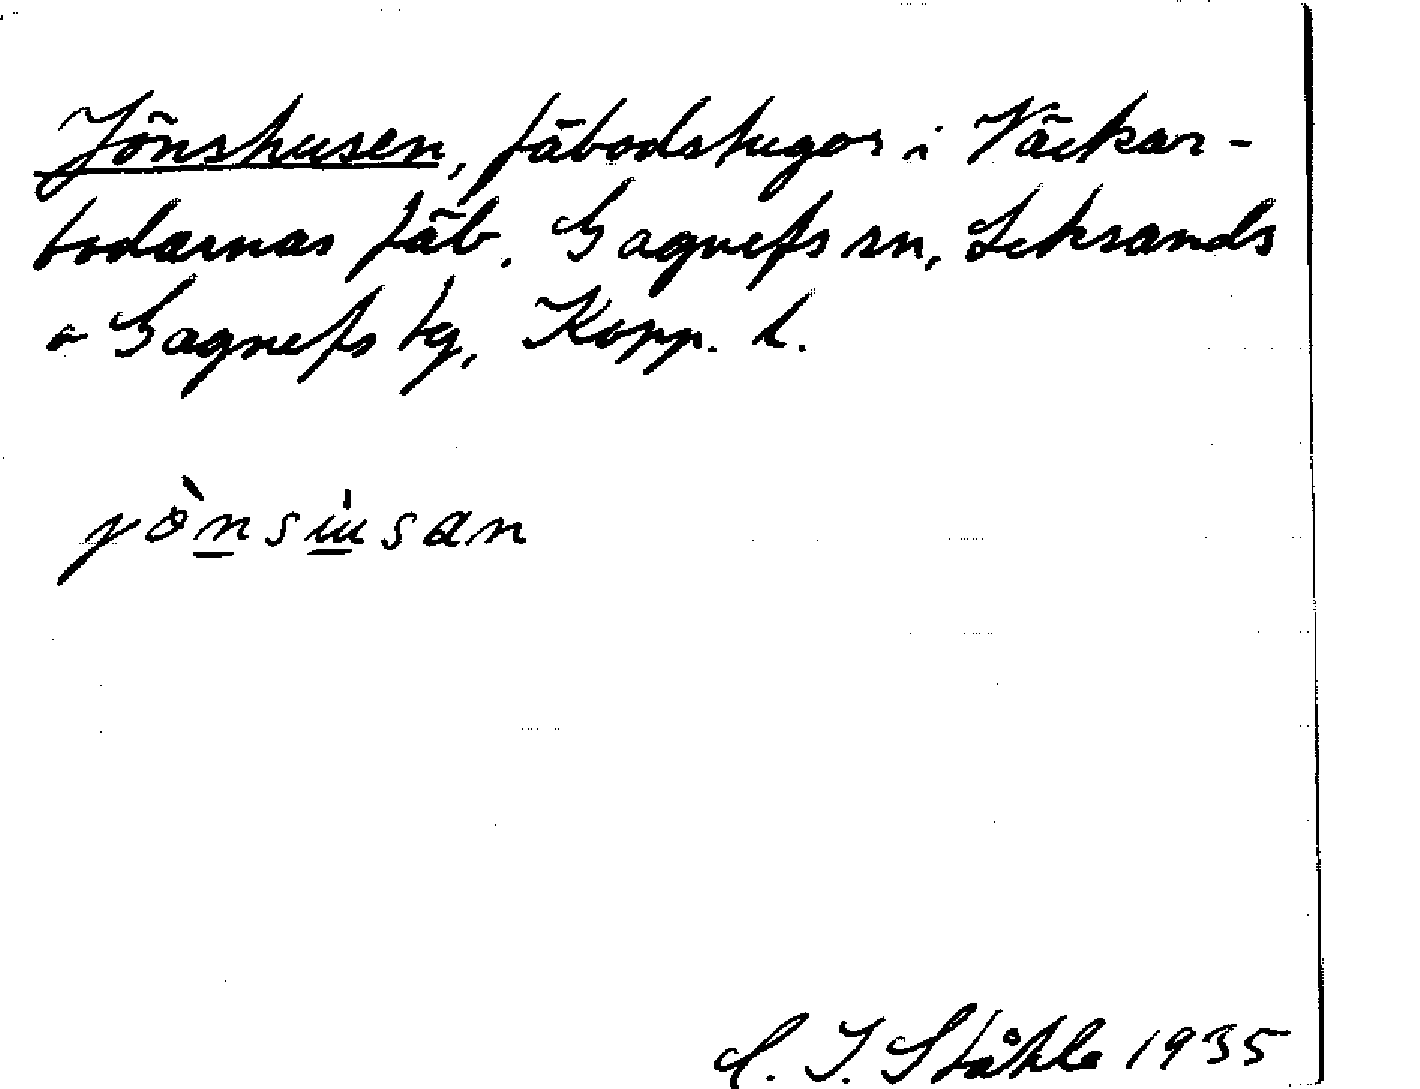 Jönshusen, fäbodstugor i Väckar-
bodarnas fäb. Gagnefs sn, Leksands
o Gagnefs tg, Kopp. l.
jònsúsan
C. I. Ståhle 1935